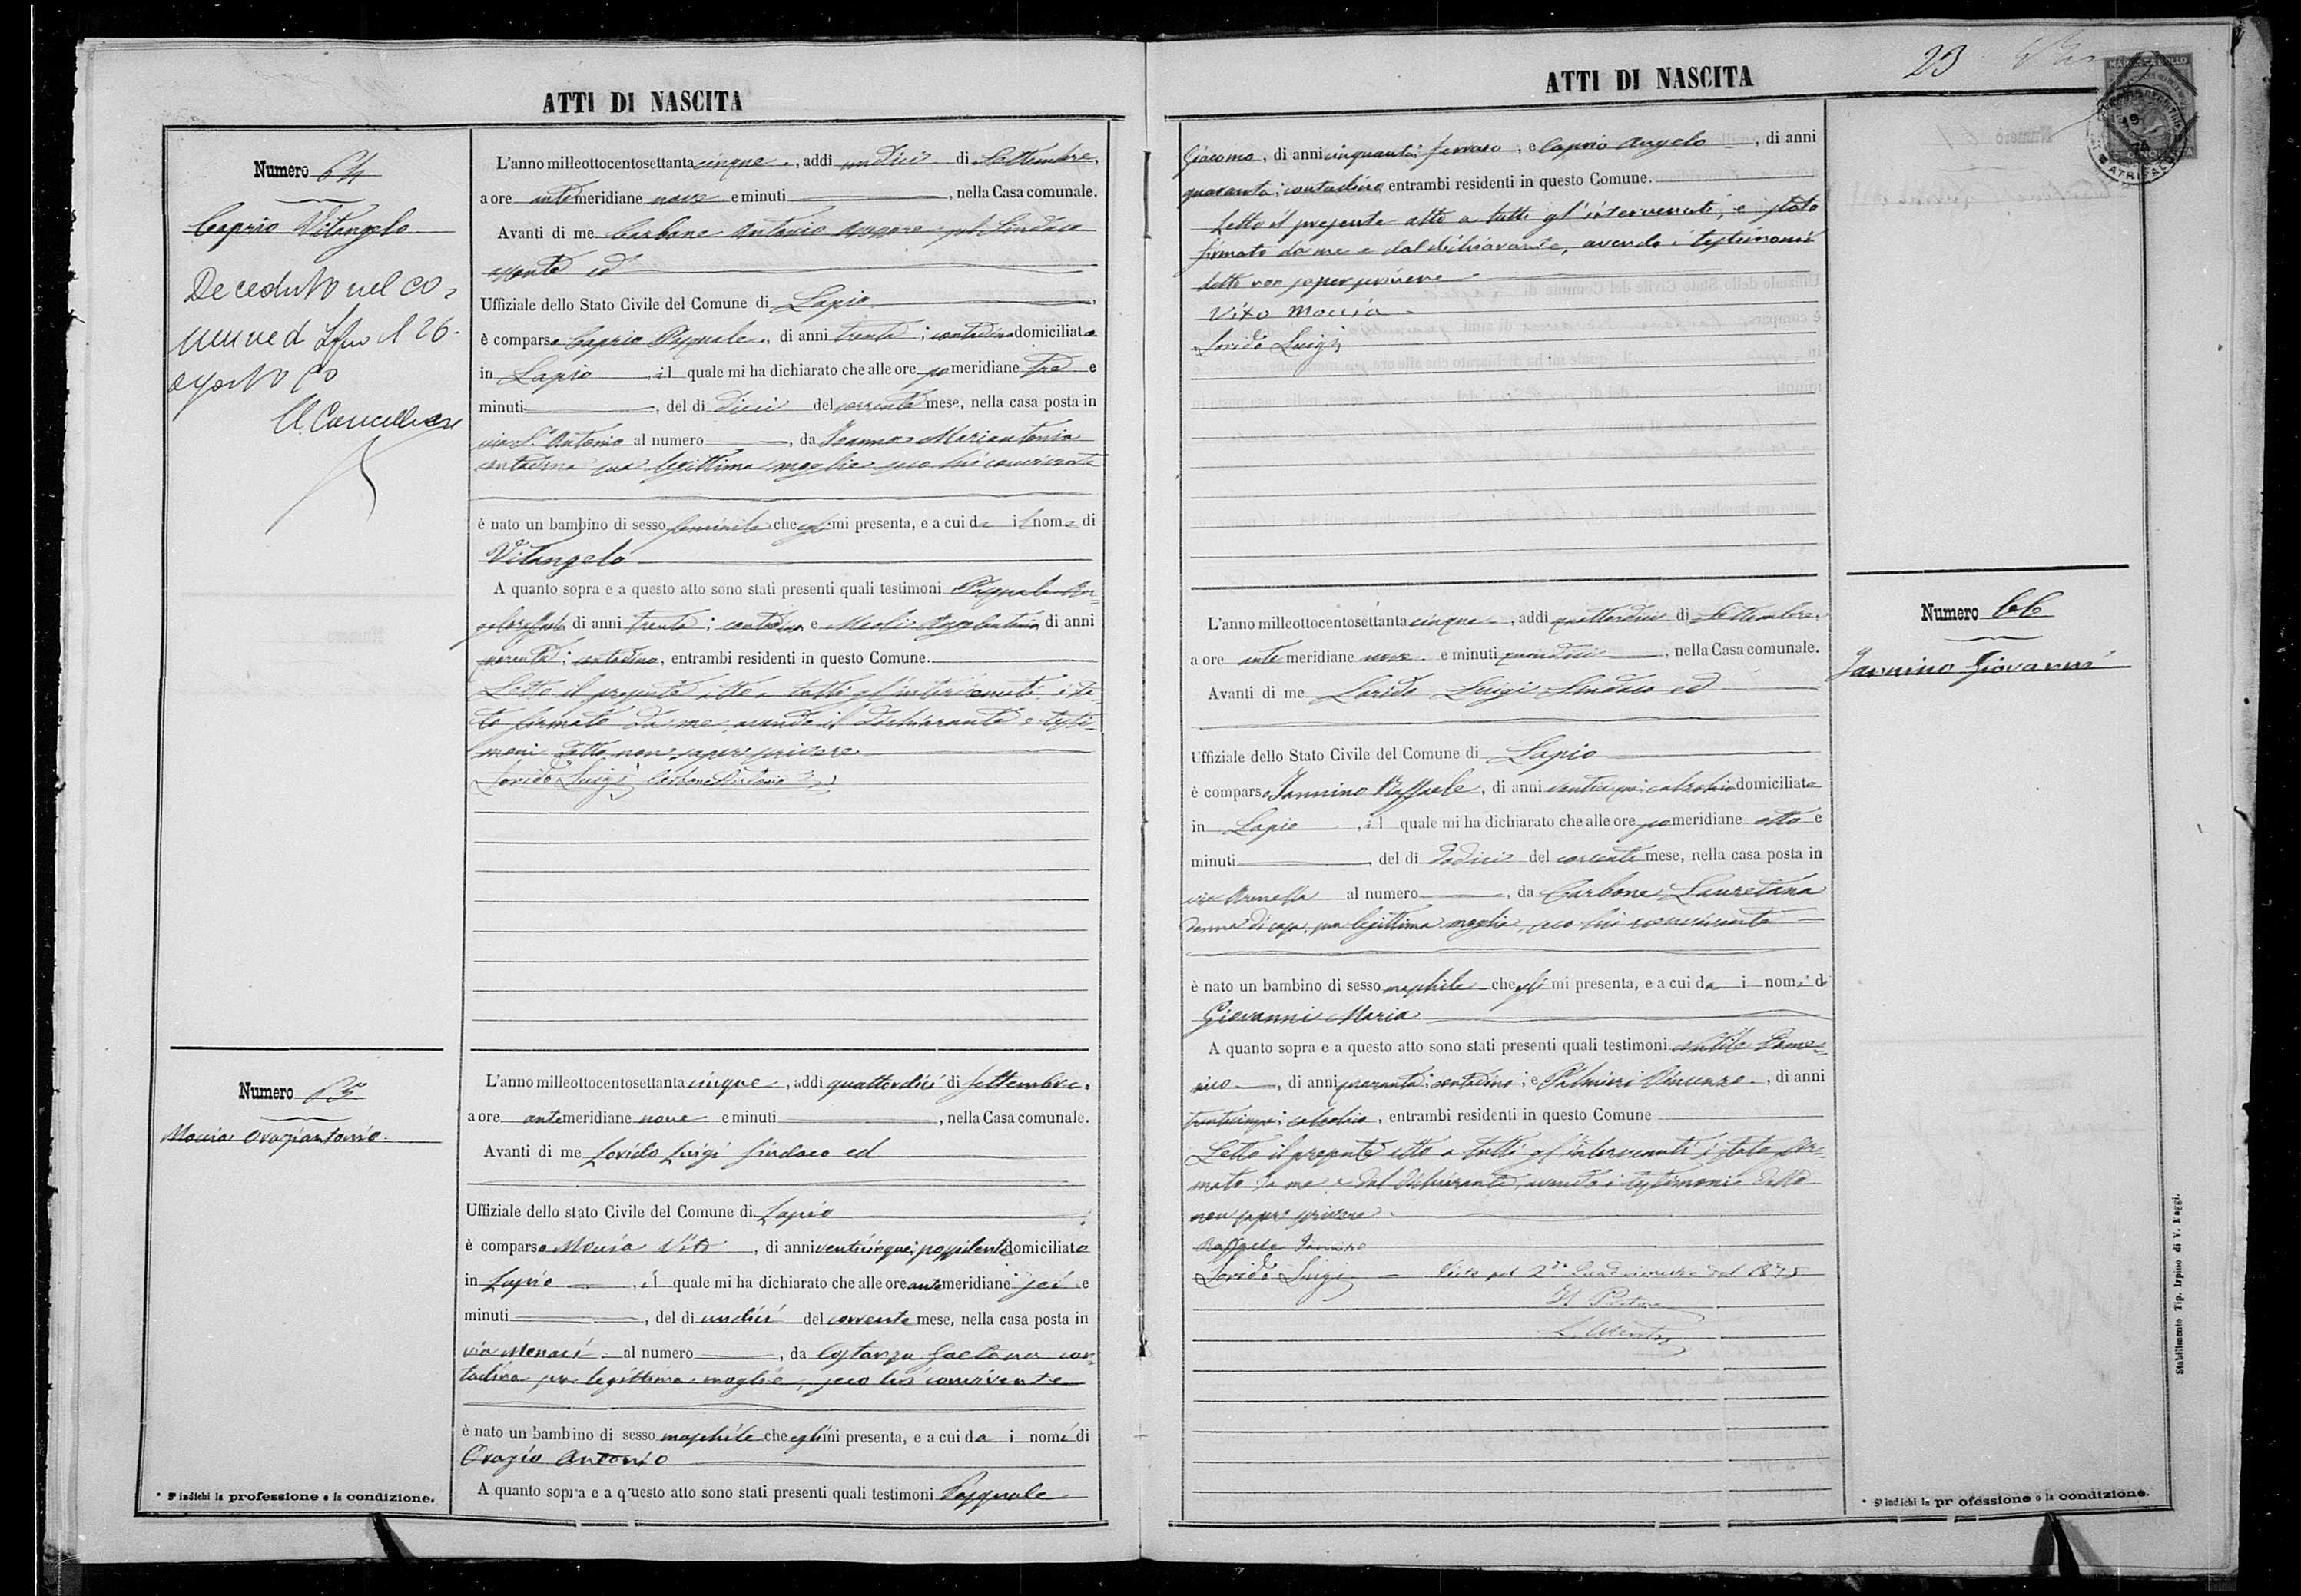 ATTI DI NASCITA
Numero 64
Caprio Vitangelo
Deceduto nel co-
mune d il 26
agosto
Il Cancelliere
L'anno milleottocentosettanta cinque, addi undici di Settembre,
a ore antemeridiane nove e minuti, nella Casa comunale.
Avanti di me Carbone Antonio Assessore pel Sindaco
assente ed
Uffiziale dello Stato Civile del Comune di Lapio
è comparso Caprio Pasquale, di anni trenta; contadino domiciliato
in Lapio, il quale mi ha dichiarato che alle ore pomeridiane tre e
minuti, del di dieci del corrente mese, nella casa posta in
via S. Antonio al numero, da Mariantonia
contadina sua legittima moglie seco lui convivente
è nato un bambino di sesso che egli mi presenta, e a cui da il nome di
Vitangelo
A quanto sopra e a questo atto sono stati presenti quali testimoni Pasquale
di anni trenta; contadino e di anni
contadino, entrambi residenti in questo Comune.
Letto il presente atto a tutti gl'intervenuti, è sta-
to firmato da me, avendo il dichiarante e testi-
moni detto non saper scrivere
Lorido Luigi Carbone Antonio
Numero 65
Moccia Oraziantonio
L'anno milleottocentosettanta cinque, addi quattordici di Settembre.
a ore antemeridiane nove e minuti, nella Casa comunale.
Avanti di me Lorido Luigi Sindaco ed
Uffiziale dello stato Civile del Comune di Lapio
è comparso Moccia Vito, di anni venticinque; possidente domiciliato
in Lapio, il quale mi ha dichiarato che alle ore antemeridiane sei e
minuti, del di undici del corrente mese, nella casa posta in
via Menaci al numero, da Costanza Gaetana con-
tadina sua legittima moglie, seco lui convivente
è nato un bambino di sesso maschile che egli mi presenta, e a cui da i nomi di
Orazio Antonio
A quanto sopra e a questo atto sono stati presenti quali testimoni Pasquale
* S'indichi la professione o la condizione.
ATTI DI NASCITA
23
Giacomo, di anni cinquanta; ferraro, e Caprio Angelo, di anni
quaranta; contadino, entrambi residenti in questo Comune.
Letto il presente atto a tutti gl'intervenuti, è stato
firmato da me e dal dichiarante, avendo i testimonii
detto non saper scrivere
Vito Moccia
Lorido Luigi
Numero 66
Iannino Giovanni
L'anno milleottocentosettanta cinque, addi quattordici di Settembre.
a ore antemeridiane nove e minuti quindici, nella Casa comunale.
Avanti di me Lorido Luigi Sindaco ed
Uffiziale dello Stato Civile del Comune di Lapio
è comparso Iannino Raffaele, di anni venticinque; calzolaio domiciliato
in Lapio, il quale mi ha dichiarato che alle ore pomeridiane otto e
minuti, del di dodici del corrente mese, nella casa posta in
via al numero, da Carbone Lauretana
donna di casa, sua legittima moglie, seco lui convivente
è nato un bambino di sesso maschile che egli mi presenta, e a cui da i nomi di
Giovanni Maria
A quanto sopra e a questo atto sono stati presenti quali testimoni Dome-
nico, di anni quaranta; contadino; e Palmieri Vincenzo, di anni
trentacinque; calzolaio, entrambi residenti in questo Comune
Letto il presente atto a tutti gl'intervenuti, è stato fir-
mato da me e dal dichiarante, avendo i testimonii detto
non saper scrivere.
Raffaele Iannino
Lorido Luigi Visto pel 2do Quadrimestre del 1875
Il Pretore
* S'indichi la professione o la condizione.
Stabilimento Tip. Irpino di V. Maggi.